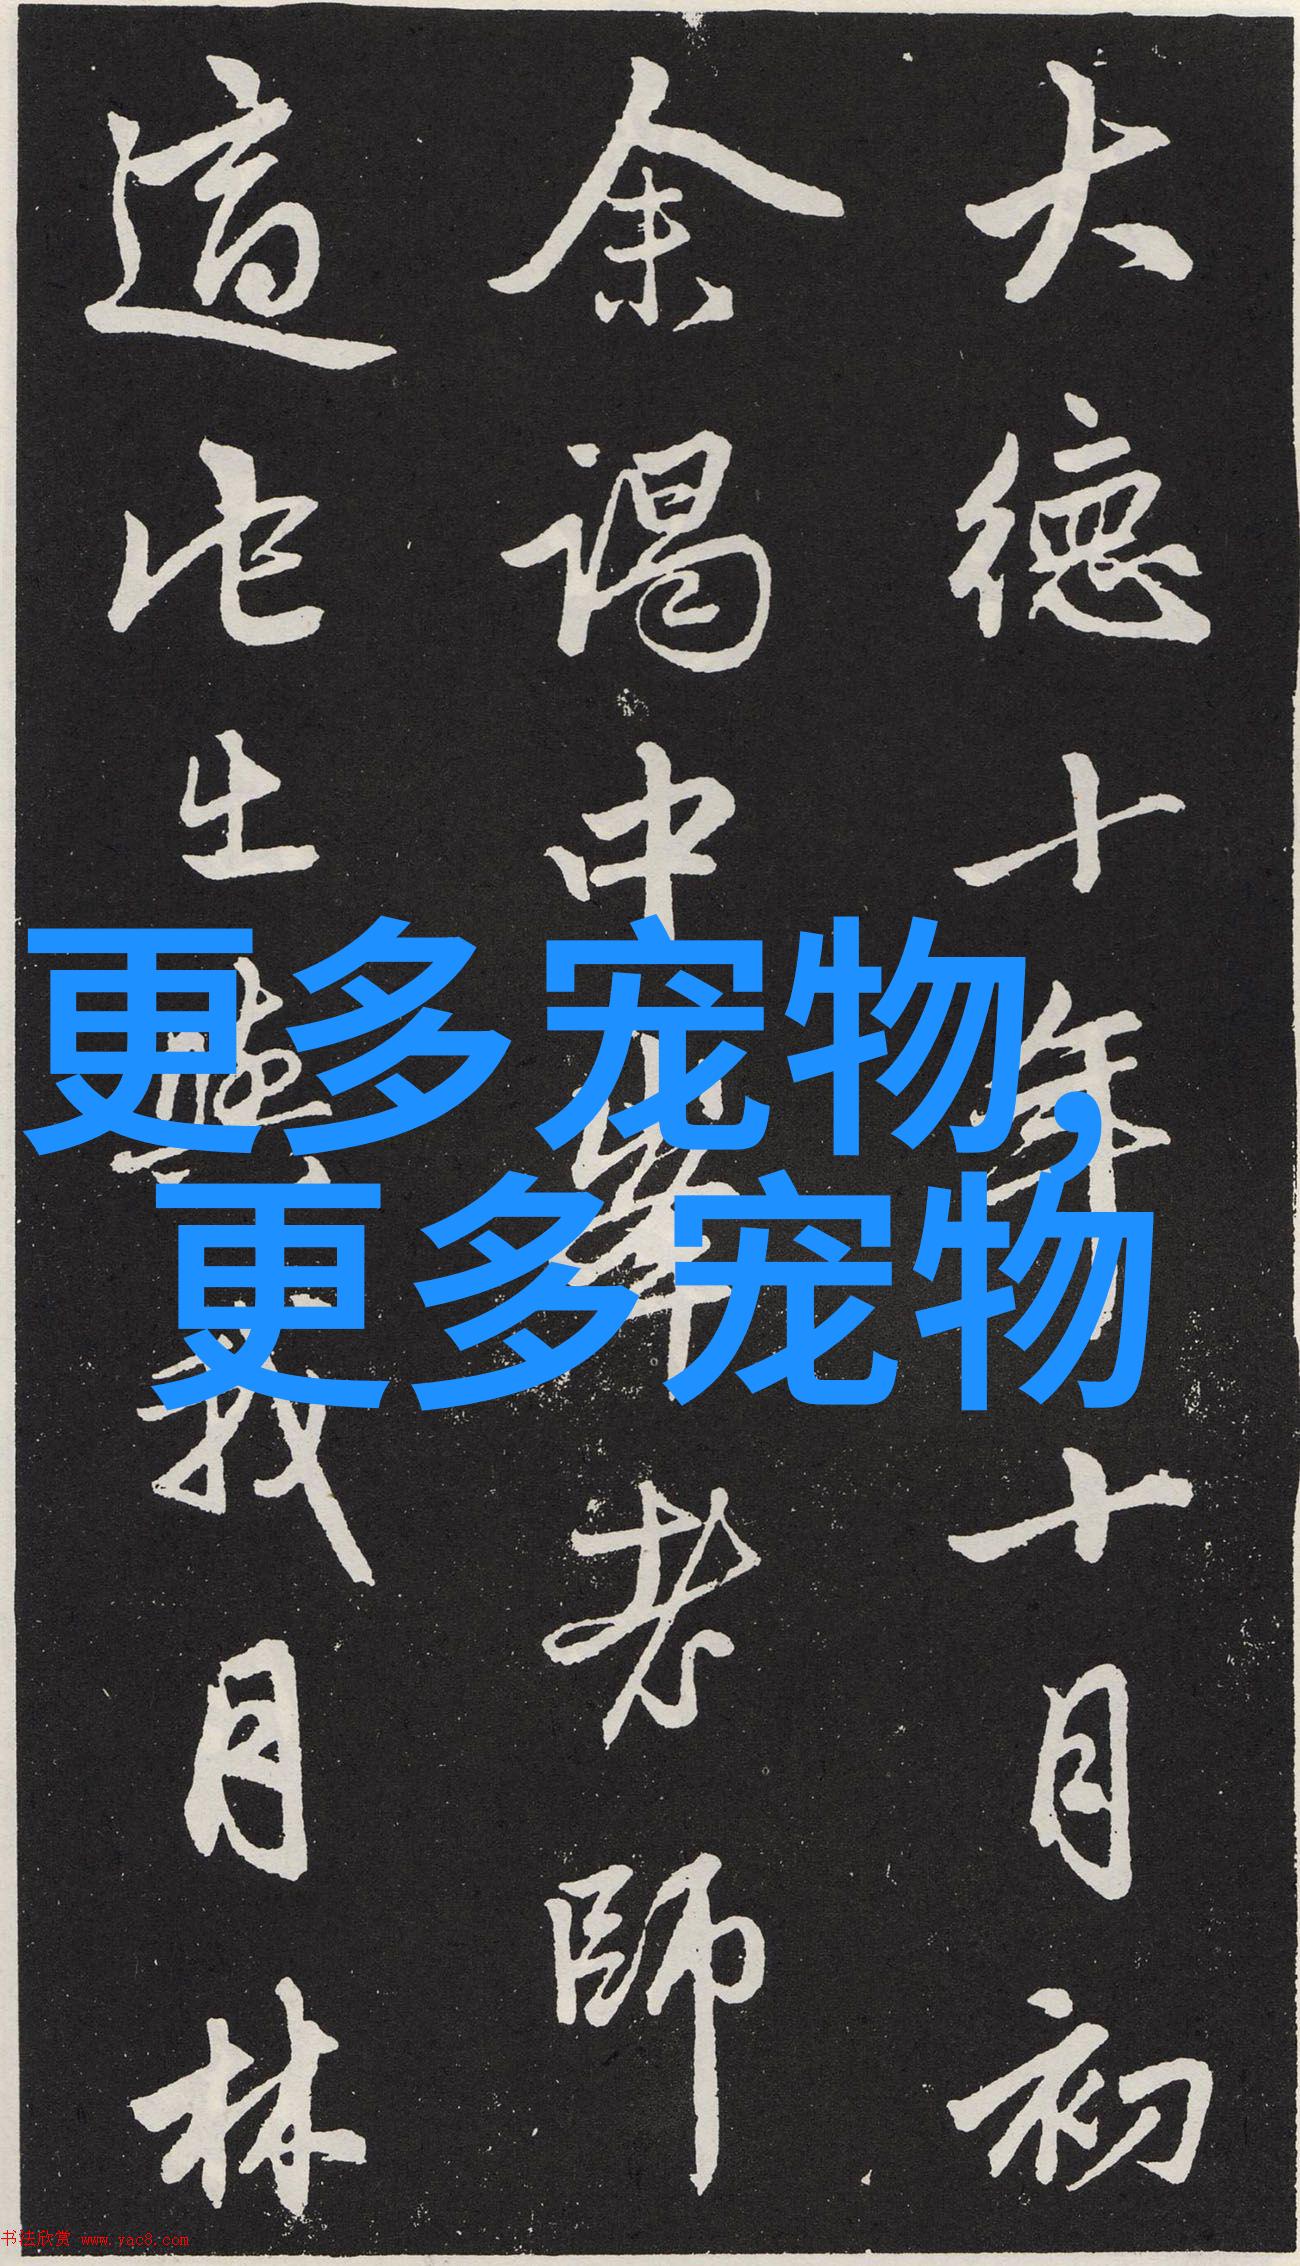 大德十年十月初
余谒中峯老師
適此出
我月林
更多宠物,
更多宠物
书法欣赏 www.yac8.com